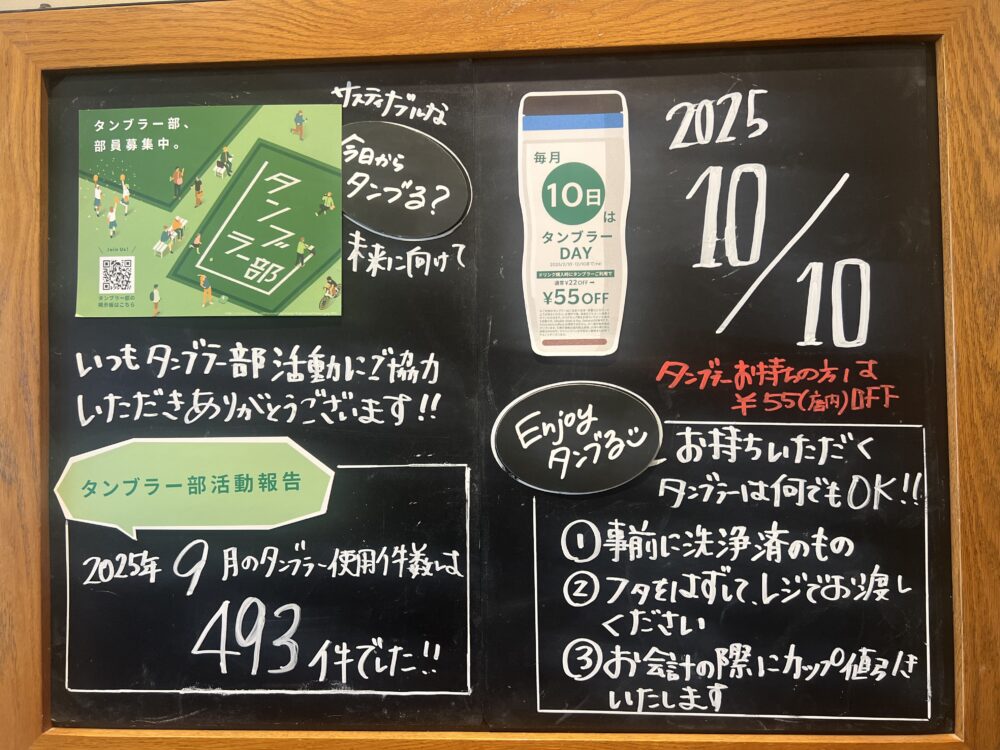 タンブラー部、
部員募集中。
タンブ
ラー部
Join Us!
タンブラー部の
サスティナブルな
今日から
タンブる?
未来に向けて
いつもタンブラー部活動にご協力
いただきありがとうございます!!
タンブラー部活動報告
2025年 9月のタンブラー使用件数は
493件でした!!
毎月
10日は
タンブラー
DAY
ドリンク購入時にタンブラーご利用で
通常¥22OFF→
¥55OFF
2025
10/10
タンブラーお持ちの方は
¥55(店内)OFF
Enjoy
タンブる
お持ちいただく
タンブラーは何でもOK!!
①事前に洗浄済のもの
②フタをはずして、レジでお渡し
ください
③お会計の際にカップ値引き
いたします